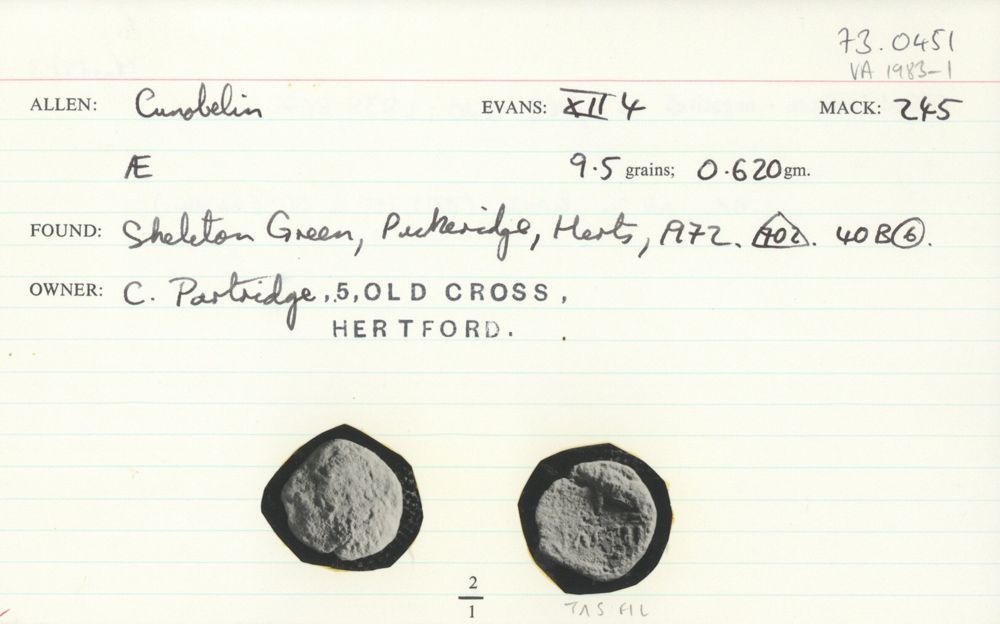 73.0451
VA 1983-1
ALLEN: Cunobelin EVANS: XII 4 MACK: 245
Æ 9.5 grains; 0.620 gm.
FOUND: Skeleton Green, Puckeridge, Herts, 1972. 702. 40B6.
OWNER: C. Partridge, 5, OLD CROSS,
HERTFORD.
2
1
TAS FIL